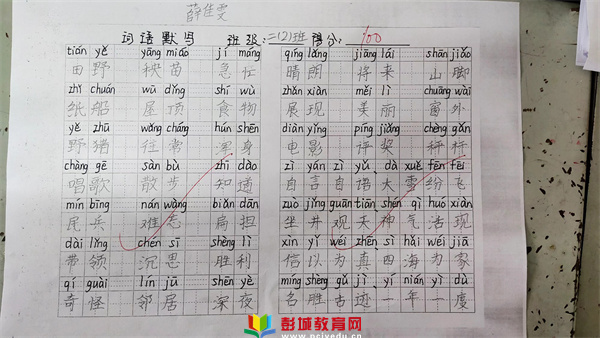 薛佳雯
词语默写 班级:二(2)班 得分: 100
tián yě yāng miáo jí máng
田野 秧苗 急忙
zhǐ chuán wū dǐng shí wù
纸船 屋顶 食物
yě zhū wǎng cháng hún shēn
野猪 往常 浑身
chàng gē sàn bù zhī dào
唱歌 散步 知道
mín bīng nán wàng biǎn dàn
民兵 难忘 扁担
dài lǐng chén sī shèng lì
带领 沉思 胜利
qí guài lín jū shēn yè
奇怪 邻居 深夜
qíng lǎng jiāng lái shān jiǎo
晴朗 将来 山脚
zhǎn xiàn měi lì chuāng wài
展现 美丽 窗外
diàn yǐng píng jiǎng chèng gǎn
电影 评奖 秤杆
zì yán zì yǔ dà xuě fēn fēi
自言自语 大雪纷飞
zuò jǐng guān tiān shén qì huó xiàn
坐井观天 神气活现
xìn yǐ wéi zhēn sì hǎi wéi jiā
信以为真 四海为家
míng shèng gǔ jì yì nián yí dù
名胜古迹 一年一度
彭城教育网